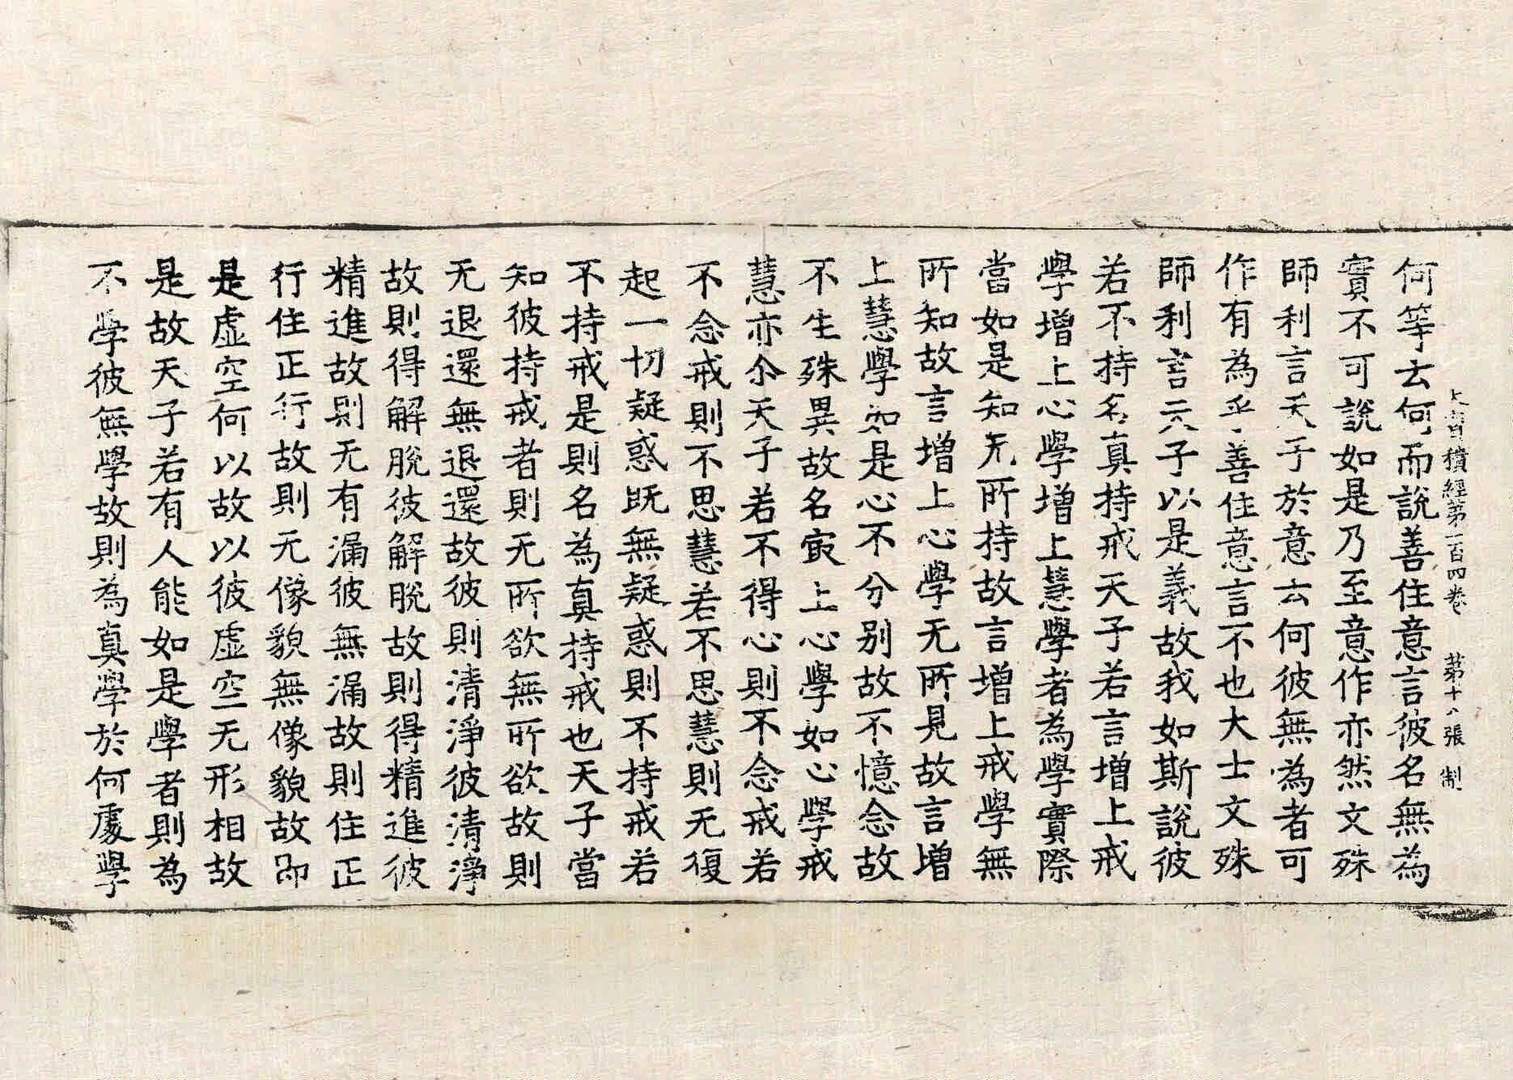 大寶積經第一百四卷 第十八張 制
何等云何而說善住意言彼名無為
實不可說如是乃至意作亦然文殊
師利言天子於意云何彼無為者可
作有為乎善住意言不也大士文殊
師利言天子以是義故我如斯說彼
若不持名真持戒天子若言增上戒
學增上心學增上慧學者為學實際
當如是知无所持故言增上戒學無
所知故言增上心學无所見故言增
上慧學如是心不分別故不憶念故
不生殊異故名㝡上心學如心學戒
慧亦尒天子若不得心則不念戒若
不念戒則不思慧若不思慧則无復
起一切疑惑既無疑惑則不持戒若
不持戒是則名為真持戒也天子當
知彼持戒者則无所欲無所欲故則
无退還無退還故彼則清淨彼清淨
故則得解脫彼解脫故則得精進彼
精進故則无有漏彼無漏故則住正
行住正行故則无像貌無像貌故即
是虛空何以故以彼虛空无形相故
是故天子若有人能如是學者則為
不學彼無學故則為真學於何處學